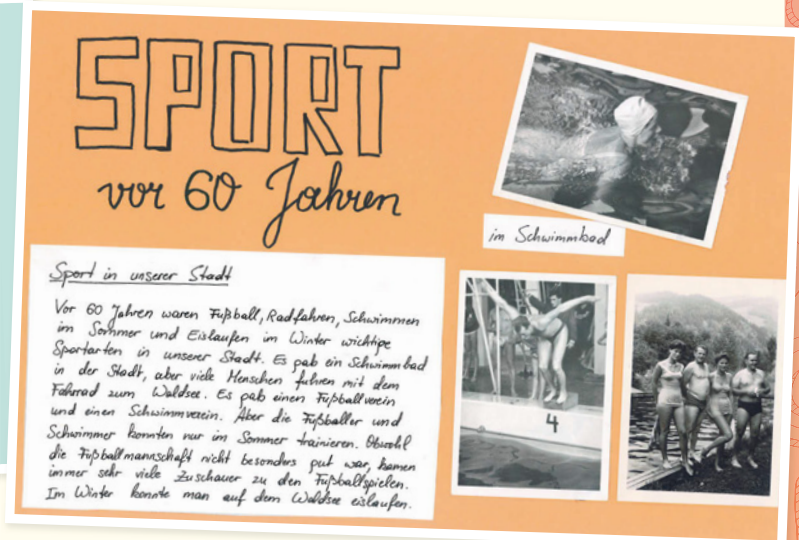 SPORT
vor 60 Jahren
im Schwimmbad
Sport in unserer Stadt
Vor 60 Jahren waren Fußball, Radfahren, Schwimmen
im Sommer und Eislaufen im Winter wichtige
Sportarten in unserer Stadt. Es gab ein Schwimmbad
in der Stadt, aber viele Menschen fuhren mit dem
Fahrrad zum Waldsee. Es gab einen Fußballverein
und einen Schwimmverein. Aber die Fußballer und
Schwimmer konnten nur im Sommer trainieren. Obwohl
die Fußballmannschaft nicht besonders gut war, kamen
immer sehr viele Zuschauer zu den Fußballspielen.
Im Winter konnte man auf dem Waldsee eislaufen.
4